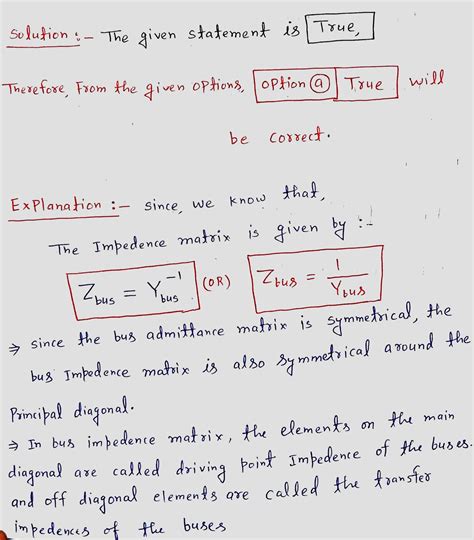 Solution :- The given statement is True,
Therefore, From the given options, option ⓐ True will
be correct.
Explanation :- since, we know that,
The Impedence matrix is given by :-
Z_bus = Y_bus^-1 (OR) Z_bus = 1/Y_bus
⇒ since the bus admittance matrix is symmetrical, the
bus Impedence matrix is also symmetrical around the
Principal diagonal.
⇒ In bus impedence matrix, the elements on the main
diagonal are called driving point Impedence of the buses.
and off diagonal elements are called the transfer
impedences of the buses